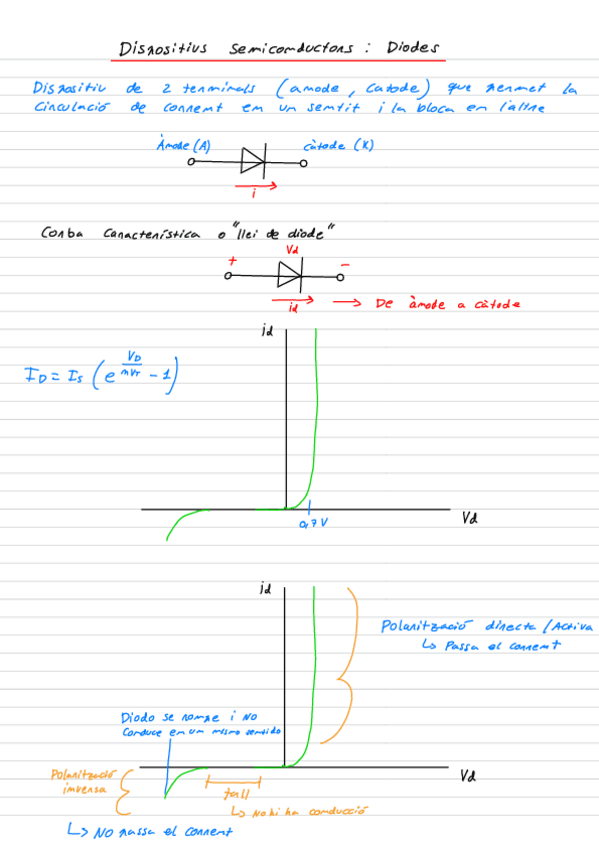 Dispositius semiconductors : Diodes
Dispositiu de 2 terminals (ànode, càtode) que permet la
circulació de corrent en un sentit i la bloca en l'altre
Ànode (A)
càtode (K)
i
Corba Característica o "llei de diode"
Vd
+
-
id
→ De ànode a càtode
id
I_D = I_S (e^{V_D / nV_T} - 1)
0,7V
Vd
id
Polarització directe / Activa
↳ Passa el corrent
Diodo se rompe i NO
conduce en un mismo sentido
Polarització
inversa
Vd
tall
↳ No hi ha conducció
↳ NO passa el corrent